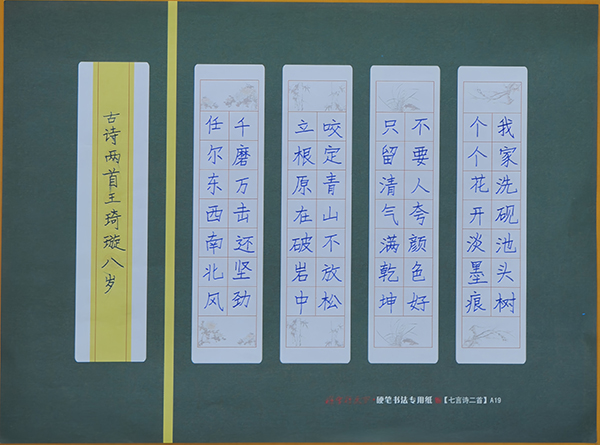 我家洗砚池头树
个个花开淡墨痕
不要人夸颜色好
只留清气满乾坤
咬定青山不放松
立根原在破岩中
千磨万击还坚劲
任尔东西南北风
古诗两首王琦璇八岁
硬笔书法专用纸
【七言诗二首】A19